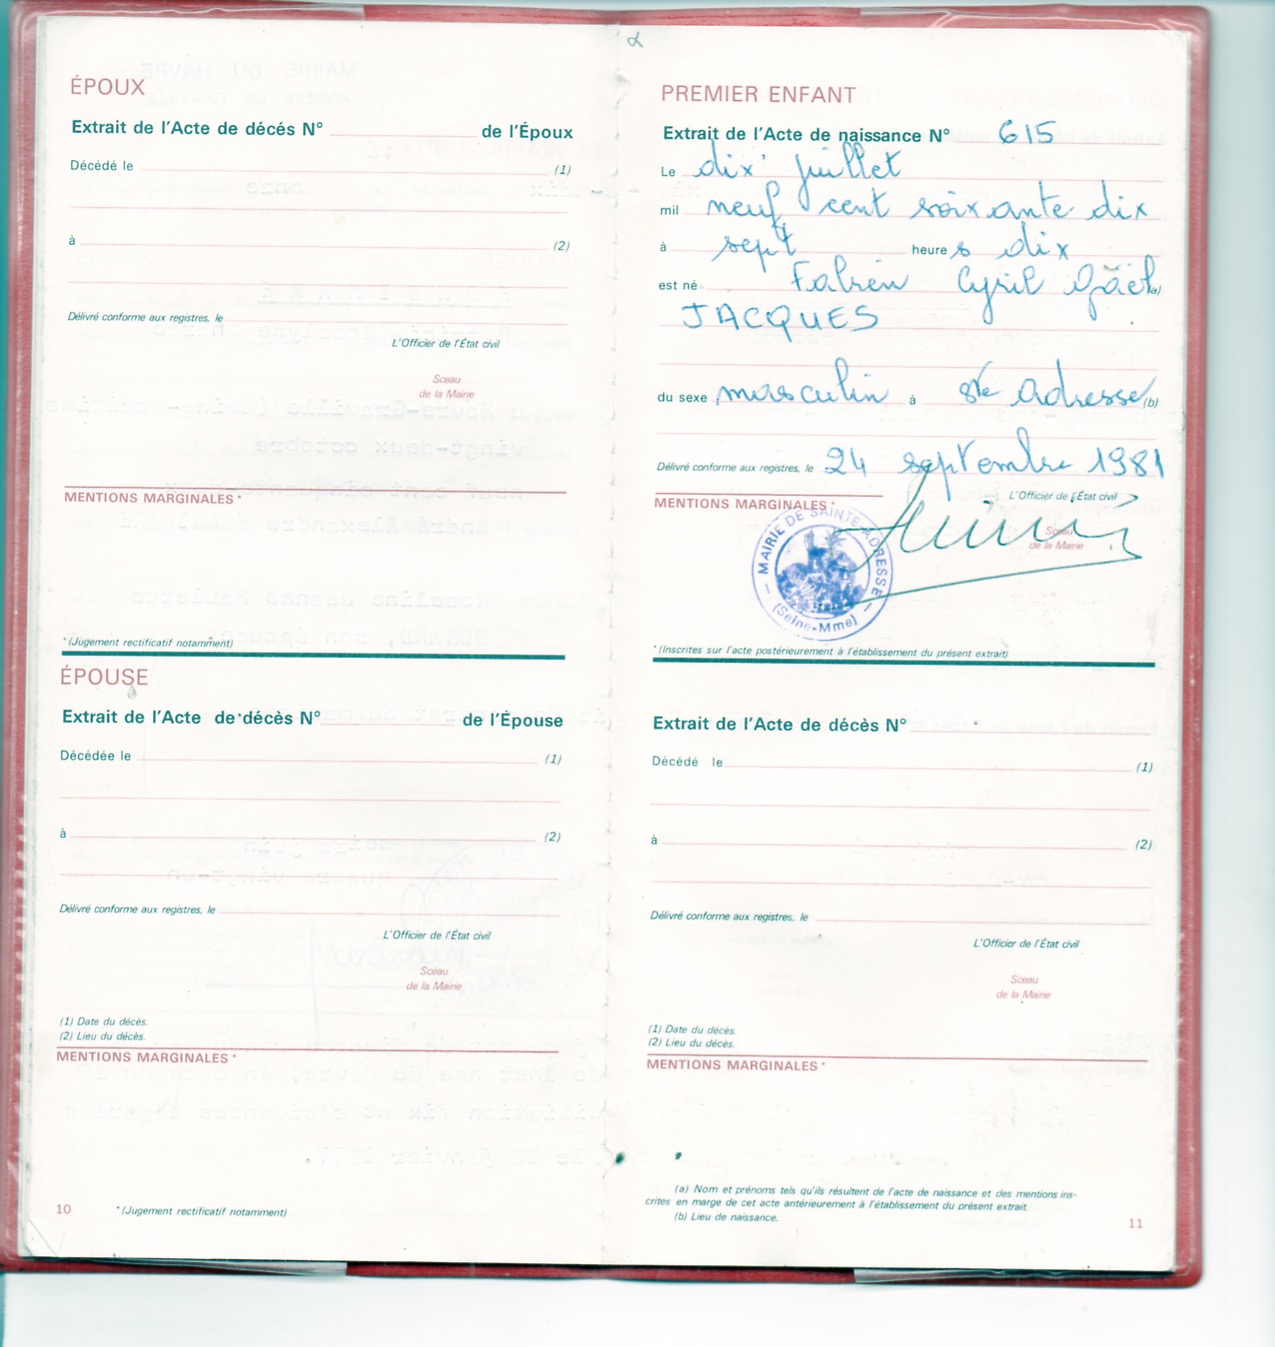 ÉPOUX
Extrait de l'Acte de décés N° de l'Époux
Décédé le (1)
à (2)
Délivré conforme aux registres, le
L'Officier de l'État civil
Sceau
de la Mairie
MENTIONS MARGINALES *
* (Jugement rectificatif notamment)
ÉPOUSE
Extrait de l'Acte de décès N° de l'Épouse
Décédée le (1)
à (2)
Délivré conforme aux registres, le
L'Officier de l'État civil
Sceau
de la Mairie
(1) Date du décès.
(2) Lieu du décès.
MENTIONS MARGINALES *
10 * (Jugement rectificatif notamment)
PREMIER ENFANT
Extrait de l'Acte de naissance N° 615
Le dix juillet
mil neuf cent soixante dix
à sept heures dix
est né Fabien Cyril Gaël (a)
JACQUES
du sexe masculin à Ste Adresse (b)
Délivré conforme aux registres, le 24 septembre 1981
MENTIONS MARGINALES *
L'Officier de l'État civil
Sceau
de la Mairie
MAIRIE DE SAINTE ADRESSE
(Seine-Mme)
* (Inscrites sur l'acte postérieurement à l'établissement du présent extrait)
Extrait de l'Acte de décès N°
Décédé le (1)
à (2)
Délivré conforme aux registres, le
L'Officier de l'État civil
Sceau
de la Mairie
(1) Date du décès.
(2) Lieu du décès.
MENTIONS MARGINALES *
(a) Nom et prénoms tels qu'ils résultent de l'acte de naissance et des mentions ins-
crites en marge de cet acte antérieurement à l'établissement du présent extrait.
(b) Lieu de naissance.
11